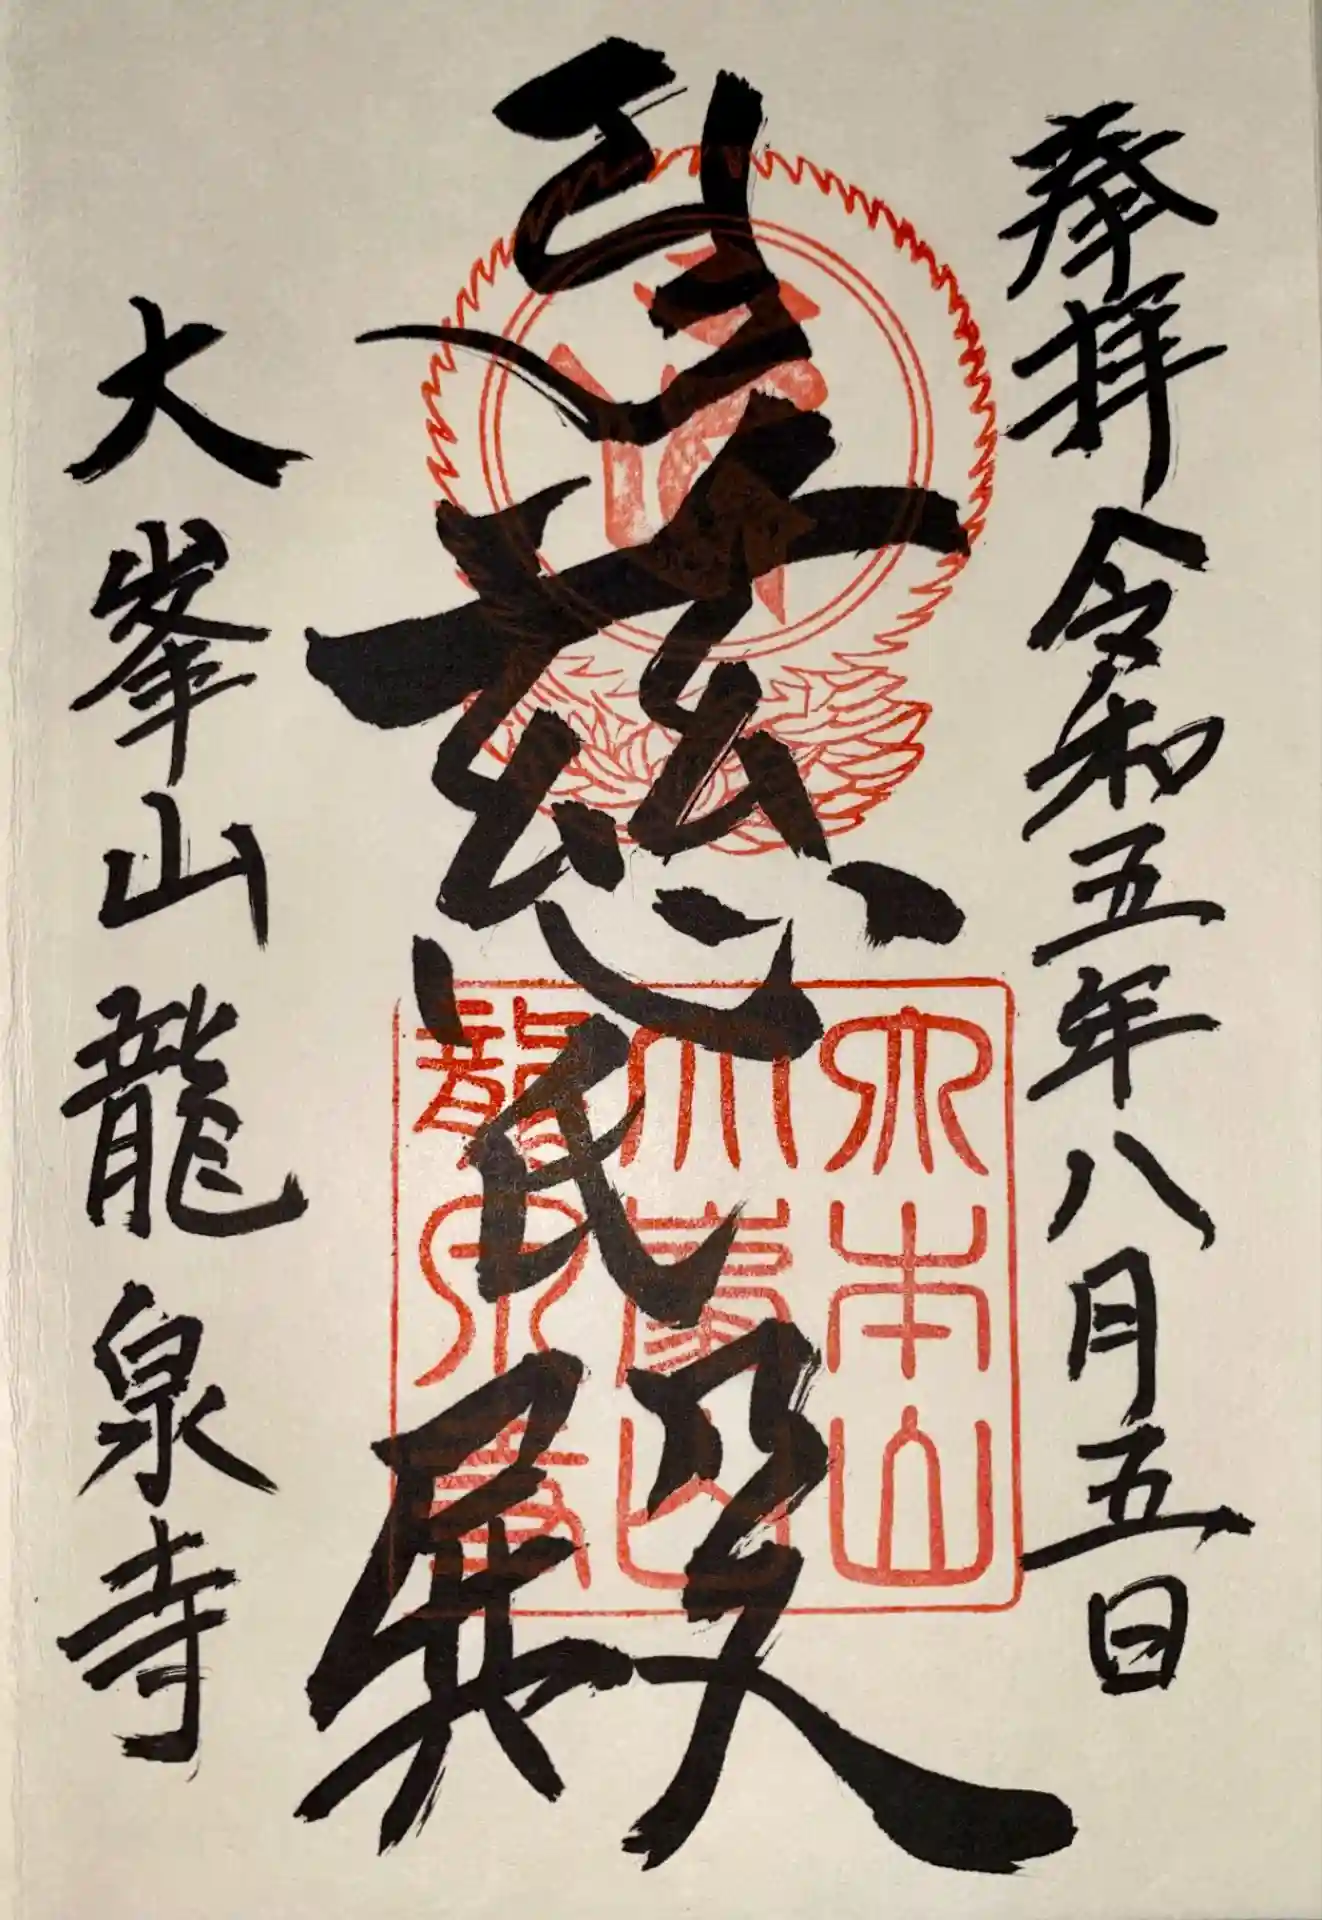 奉拝 令和五年八月五日
慈氏殿
大峯山龍泉寺
大本山
大峯山
龍泉寺